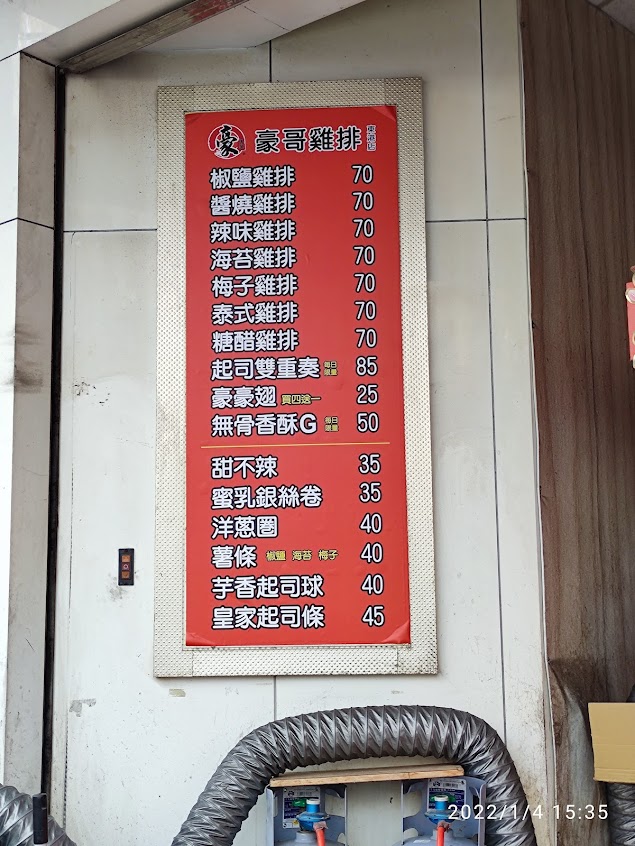 豪 豪哥雞排 東港店
椒鹽雞排 70
醬燒雞排 70
辣味雞排 70
海苔雞排 70
梅子雞排 70
泰式雞排 70
糖醋雞排 70
起司雙重奏 每日限量 85
豪豪翅 買四送一 25
無骨香酥G 每日限量 50
甜不辣 35
蜜乳銀絲卷 35
洋蔥圈 40
薯條 椒鹽 海苔 梅子 40
芋香起司球 40
皇家起司條 45
2022/1/4 15:35